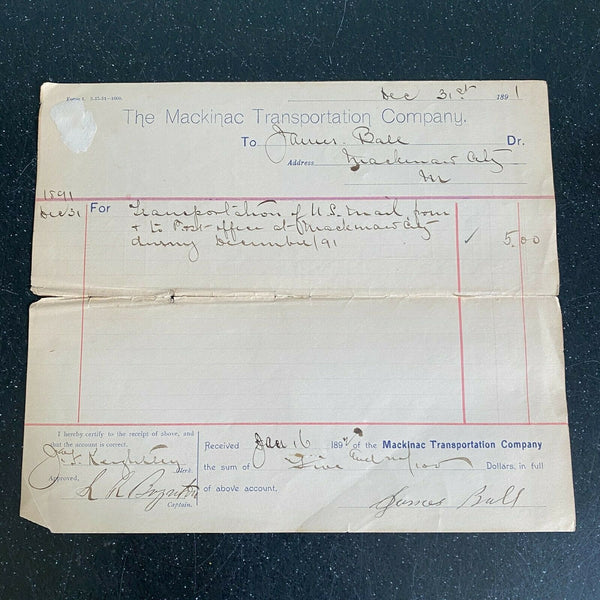 Form 1. 5-15-91-1000.
Dec 31st 1891
The Mackinac Transportation Company.
To James Ball Dr.
Address Mackinaw City
M
1891
Dec 31 For Transportation of U.S. Mail from
+ to Post office at Mackinaw City
during December/91 ✓ 5.00
I hereby certify to the receipt of above, and
that the account is correct.
Clerk.
Approved,
L R Boynton
Captain.
Received Jan 16 1892 of the Mackinac Transportation Company
the sum of Five and no/100 Dollars, in full
of above account.
James Ball